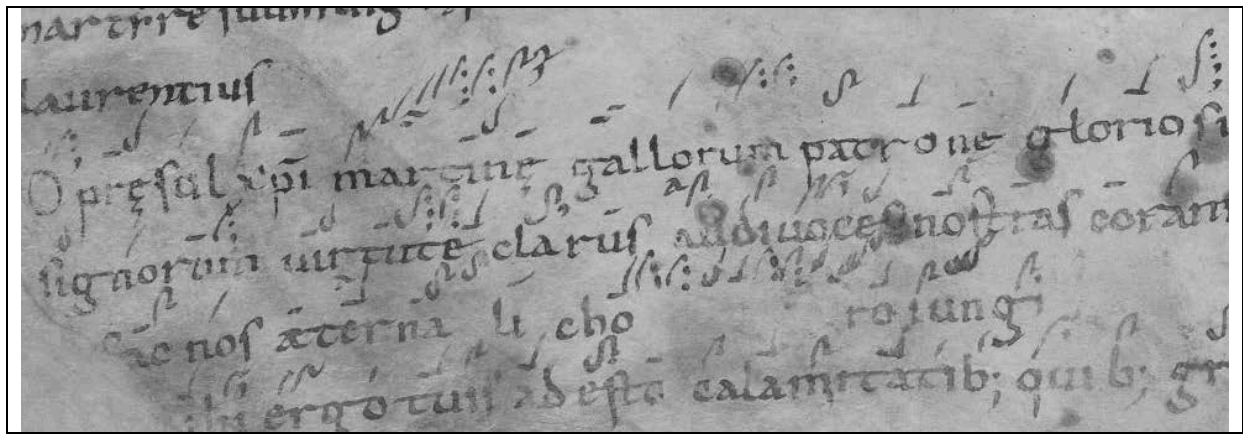 martire
laurentius
O pręsul xp̄i martine gallorum patrone gloriosi
signorum uirtute clarus audi uoces nostras coram
fac nos aeterna li cho ro iungi
ergo tuis adesto calamitatib; quib; gr